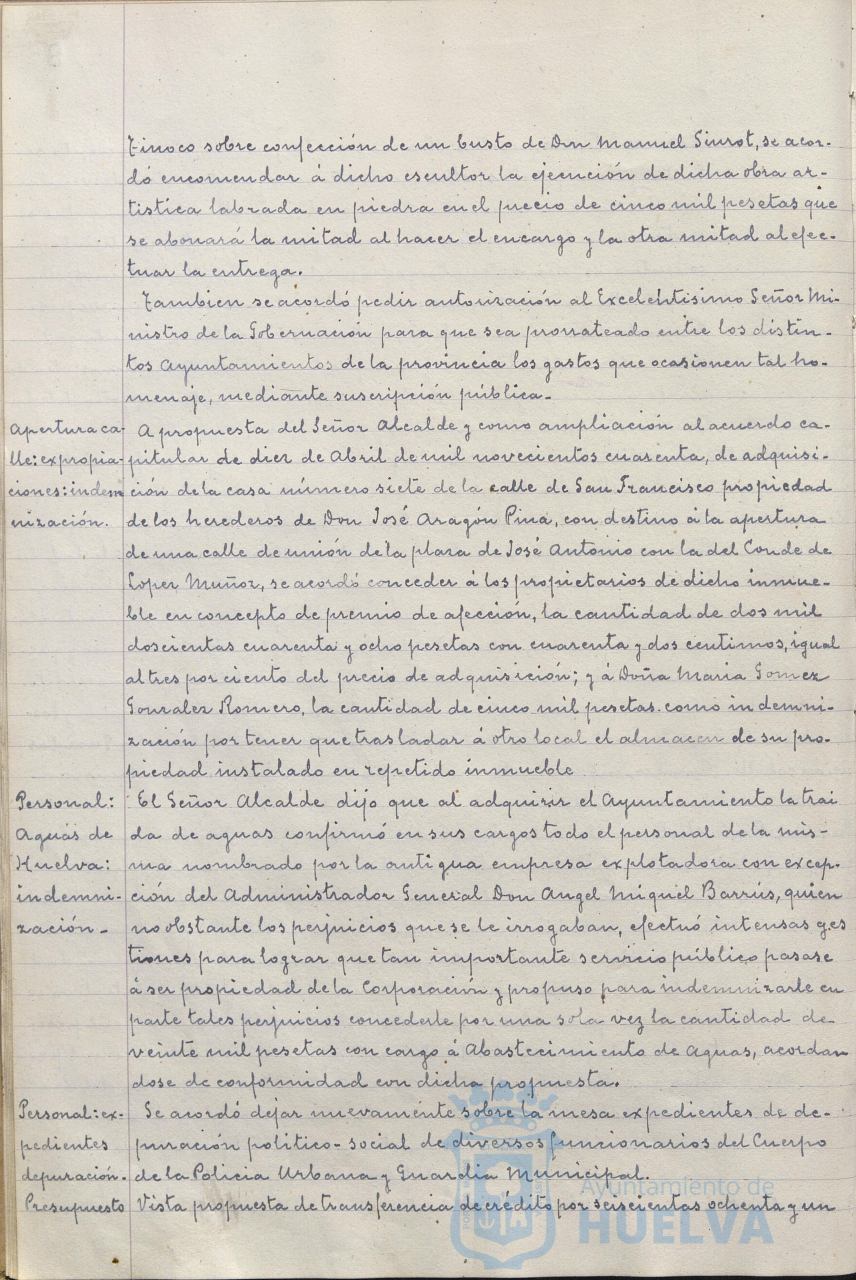 Tinoco sobre confección de un busto de Don Manuel Siurot, se acor-
dó encomendar á dicho escultor la ejecución de dicha obra ar-
tistica labrada en piedra en el precio de cinco mil pesetas que
se abonará la mitad al hacer el encargo y la otra mitad al efec-
tuar la entrega.
Tambien se acordó pedir autorización al Excelentisimo Señor Mi-
nistro de la Gobernación para que sea prorrateado entre los distin-
tos Ayuntamientos de la provincia los gastos que ocasionen tal ho-
menaje, mediante suscripción pública.-
Apertura ca-
lle: expropia-
ciones: indem
nización.
A propuesta del Señor Alcalde y como ampliación al acuerdo ca-
pitular de diez de Abril de mil novecientos cuarenta, de adquisi-
ción de la casa número siete de la calle de San Francisco propiedad
de los herederos de Don José Aragón Pina, con destino á la apertura
de una calle de unión de la plaza de José Antonio con la del Conde de
Lopez Muñoz, se acordó conceder á los propietarios de dicho inmue-
ble en concepto de premio de afección, la cantidad de dos mil
doscientas cuarenta y ocho pesetas con cuarenta y dos centimos, igual
al tres por ciento del precio de adquisición; y á Doña Maria Gomez
Gonzalez Romero, la cantidad de cinco mil pesetas. como indemni-
zación por tener que trasladar á otro local el almacen de su pro-
piedad instalado en repetido inmueble
Personal:
Aguas de
Huelva:
indemni-
zación-
El Señor Alcalde dijo que al adquirir el Ayuntamiento la trai
da de aguas confirmó en sus cargos todo el personal de la mis-
ma nombrado por la antigua empresa explotadora con excep-
ción del Administrador General Don Angel Miguel Barrús, quien
no obstante los perjuicios que se le irrogaban, efectuó intensas ges
tiones para lograr que tan importante servicio público pasase
á ser propiedad de la Corporación y propuso para indemnizarle en
parte tales perjuicios concederle por una sola vez la cantidad de
veinte mil pesetas con cargo á Abastecimiento de Aguas, acordan
dose de conformidad con dicha propuesta.
Personal: ex-
pedientes
depuración.-
Se acordó dejar nuevamente sobre la mesa expedientes de de-
puración politico-social de diversos funcionarios del Cuerpo
de la Policia Urbana y Guardia Municipal.
Presupuesto
Vista propuesta de transferencia de crédito por seiscientas ochenta y un
Ayuntamiento de
HUELVA